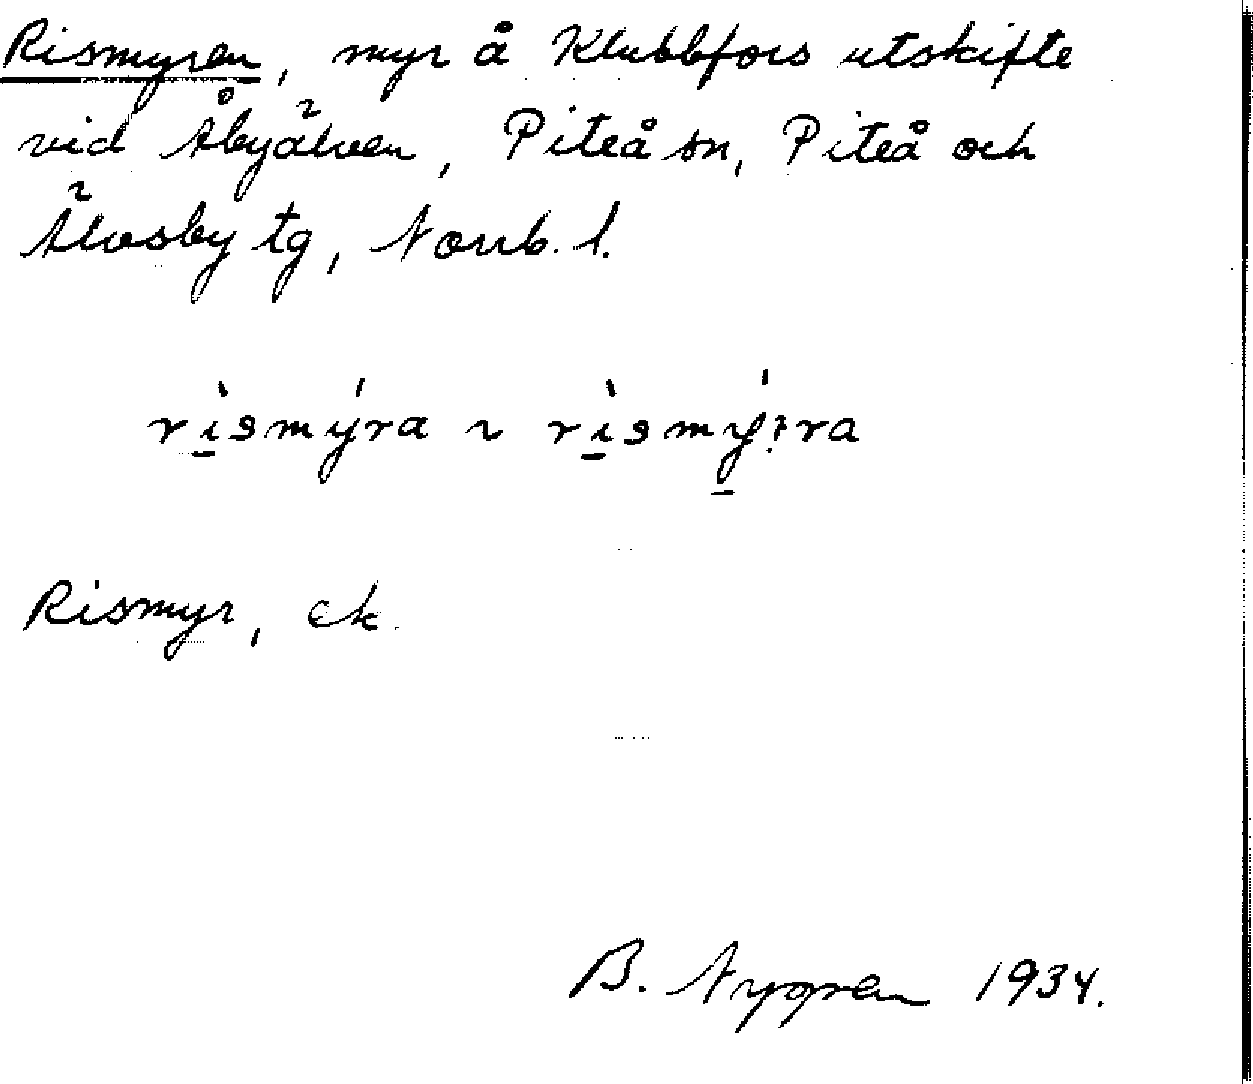 Rismyren, myr å Klubbfors utskifte
vid Åbyälven, Piteå sn, Piteå och
Älvsby tg, Norrb. l.
rìsmýra ~ rìsmý:ra
Rismyr, ek.
B. Nygren 1934.